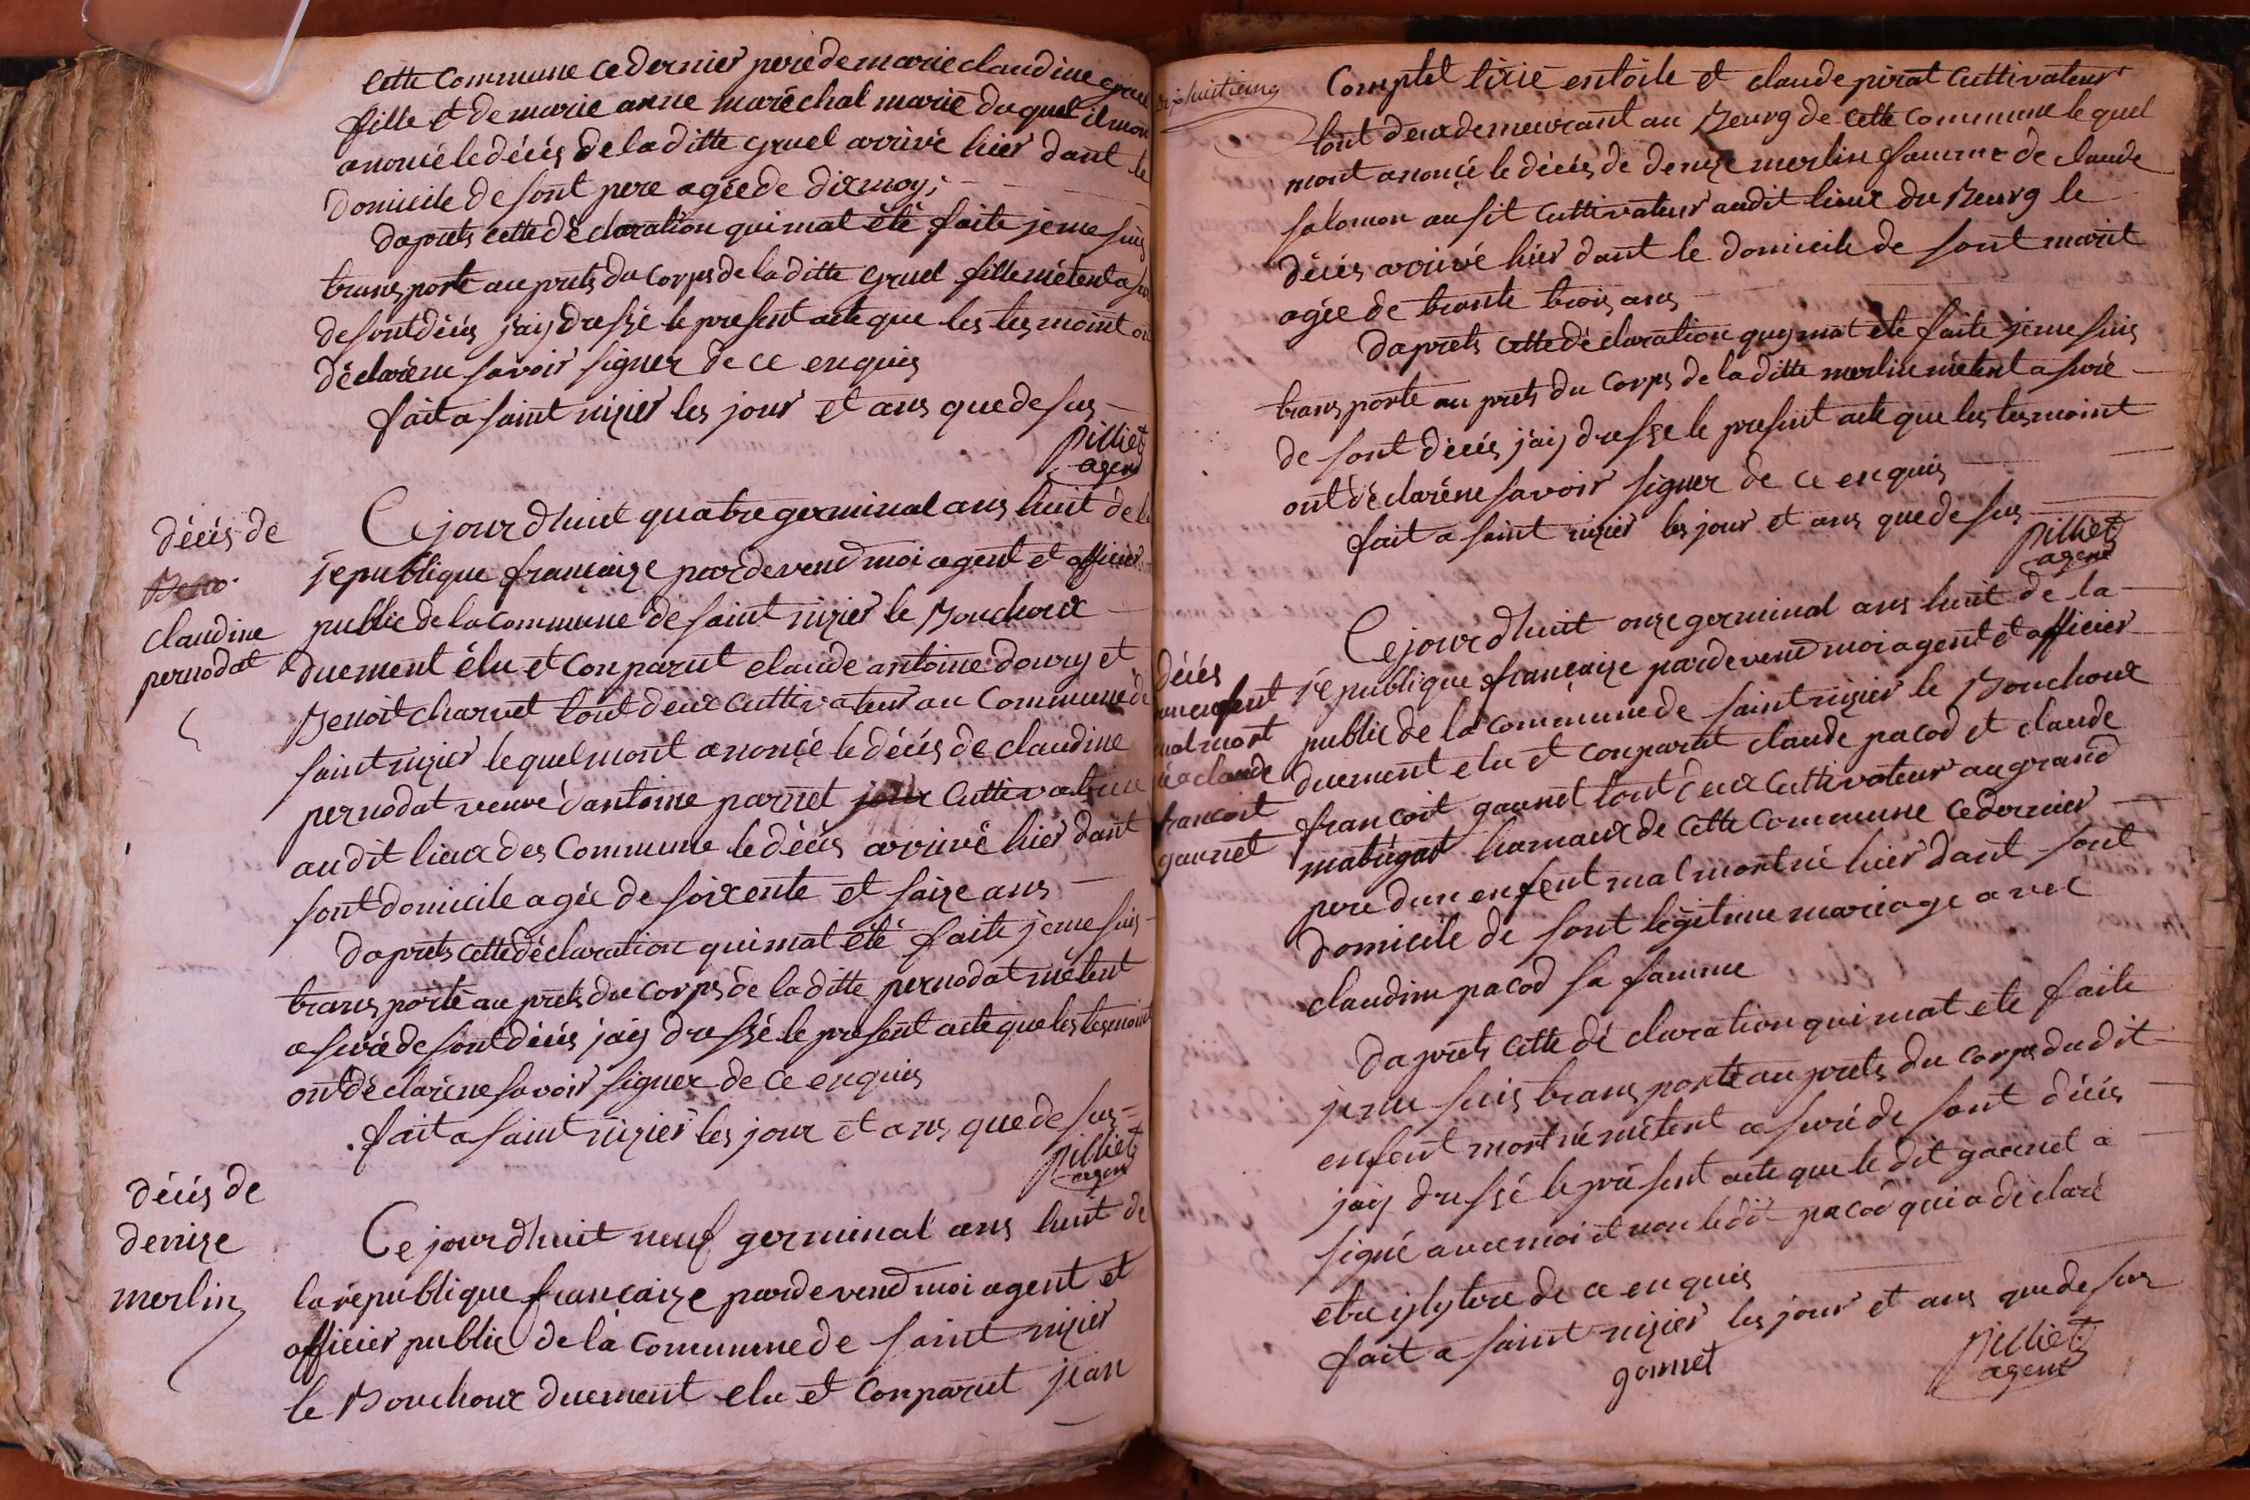 Cette Commune ce dernier pere de marie claudine gruel
fille et de marie anne maréchal marié du quel il mon
anoncé le décés de la ditte gruel arrivé hier dant le
domicile de sont pere agée de dix moys
Daprets cette déclaration qui mat été faite je me suis
transporté au prets du Corps de la ditte gruel fille
de sont décés j'aij dressé le present acte que les tesmoint on
déclaréne savoir signer de ce enquis
fait a saint nizier les jour et ans que de sus
pilliet
agent
décés de
claudine
pernodat
Ce jourdhuit quatre germinal ans huit de la
république françaize pardevend moi agent et officier
public de la Commune de saint nizier le Bouchoux
duement élu et Conparut claude antoine doury et
Benoit charvet tout deux Cuttivateur au Commune de
saint nizier le quel mont anoncé le décés de claudine
pernodat veuve d'antoine parnet Cuttivatrice
audit lieux des Commune le décés arrivé hier dant
sont domicile agée de soixente et saize ans
Daprets cette déclaration qui mat été faite je me suis
transporté au prets du Corps de la ditte pernodat métent
asuré de sont décés jaij dressé le present acte que les tesmoint
ont déclaréne savoir signer de ce enquis
fait a saint nizier les jour et ans que de sus
pilliet
agent
décés de
denize
merlin
Ce jourdhuit neuf germinal ans huit de
la république françaize pardevend moi agent et
officier public de la Commune de saint nizier
le Bouchoux duement elu et Conparut jean
Comptet tixié entoile et claude pirat Cuttivateur
tout deux demeurant au Bourg de Cette Commune le quel
mont anoncé le décés de denize merlin famme de claude
salomon ausit Cuttivateur audit lieux du Bourg le
décés arrivé hier dant le domicile de sont marit
agée de trante trois ans
Daprets cette déclaration quy mat ete faite je me suis
transporté au prets du Corps de la ditte merlin métent asuré
de sont décés j'aij dressé le present acte que les tesmoint
ont déclaréne savoir signer de ce enquis
fait a saint nizier les jour et ans que de sus
pilliet
agent
décés
enfent
mal mort
né a claude
francoit
gaunet
Ce jourdhuit onze germinal ans huit de la
république françaize pardevend moi agent et officier
public de la Commune de saint nizier le Bouchoux
duement elu et Conparut claude pacod et claude
francoit gaunet tout deux Cuttivateur au grand
hamaux de Cette Commune ce dernier
pere dun enfent mal mort né hier dant sont
domicile de sont légitime mariage avec
claudine pacod sa famme
Daprets cette déclaration qui mat ete faite
je me suis transporté au prets du Corps dudit
enfent mort né métent asuré de sont décés
jaij dressé le présent acte que le dit gaunet a
signé avec moi et non le dit pacod qui a déclaré
etre de ce enquis
fait a saint nizier les jour et ans que de sus
gonnet
pilliet
agent